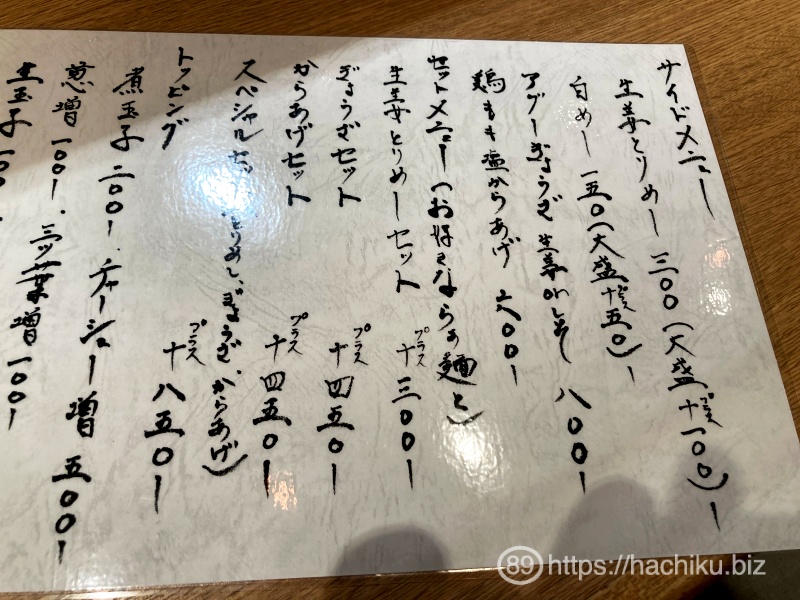 サイドメニュー
生姜とりめし 三〇〇(大盛十プラス一〇〇)ー
白めし 一五〇(大盛十プラス五〇)ー
アグーぎょうざ 生姜orしそ 八〇〇ー
鶏もも塩からあげ 六〇〇ー
セットメニュー(お好きならぁ麺と)
生姜とりめしセット プラス十三〇〇ー
ぎょうざセット プラス十四五〇ー
からあげセット プラス十四五〇ー
スペシャルセット(とりめし、ぎょうざ、からあげ)
プラス十八五〇ー
トッピング
煮玉子 二〇〇ー、チャーシュー増 五〇〇ー
葱増 一〇〇ー、三ッ葉増 一〇〇ー
生玉子 一〇〇ー、
89 https://hachiku.biz